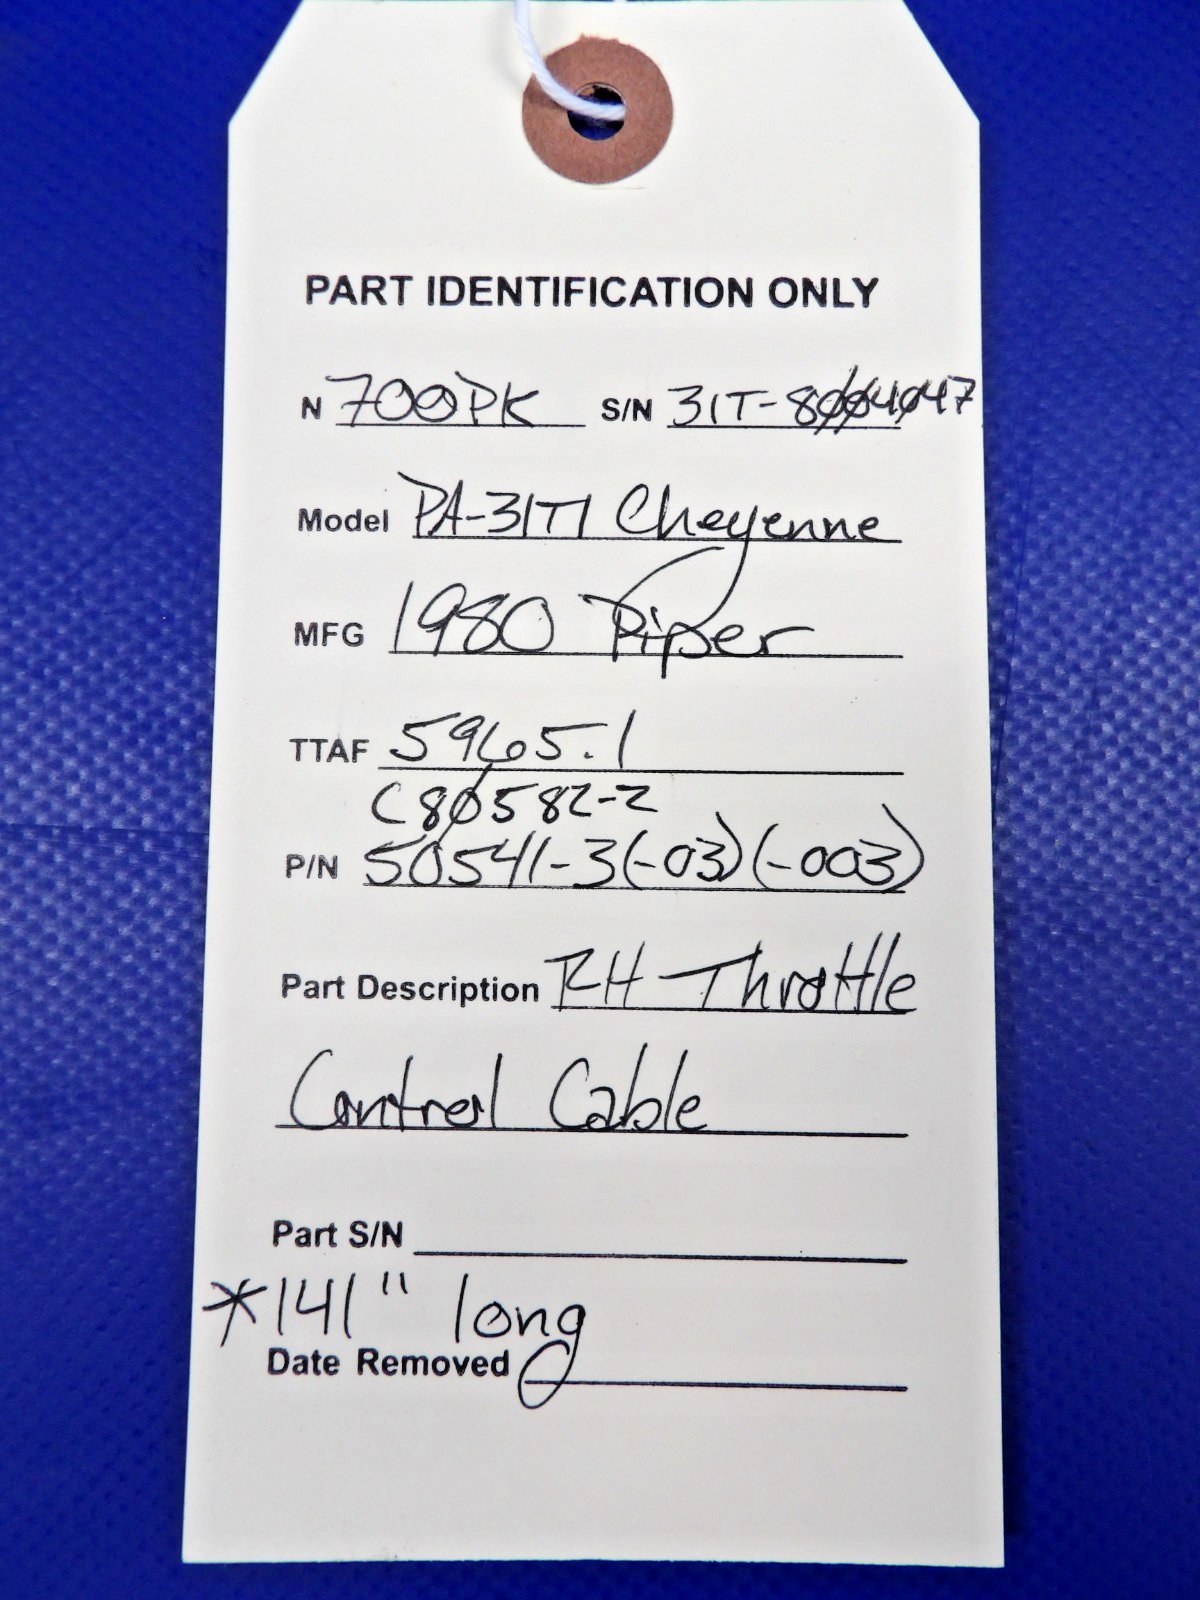 PART IDENTIFICATION ONLY
N 700PK S/N 31T-8004047
Model PA-31T1 Cheyenne
MFG 1980 Piper
TTAF 5965.1
C80582-2
P/N 50541-3(-03)(-003)
Part Description RH Throttle
Control Cable
Part S/N
*141" long
Date Removed